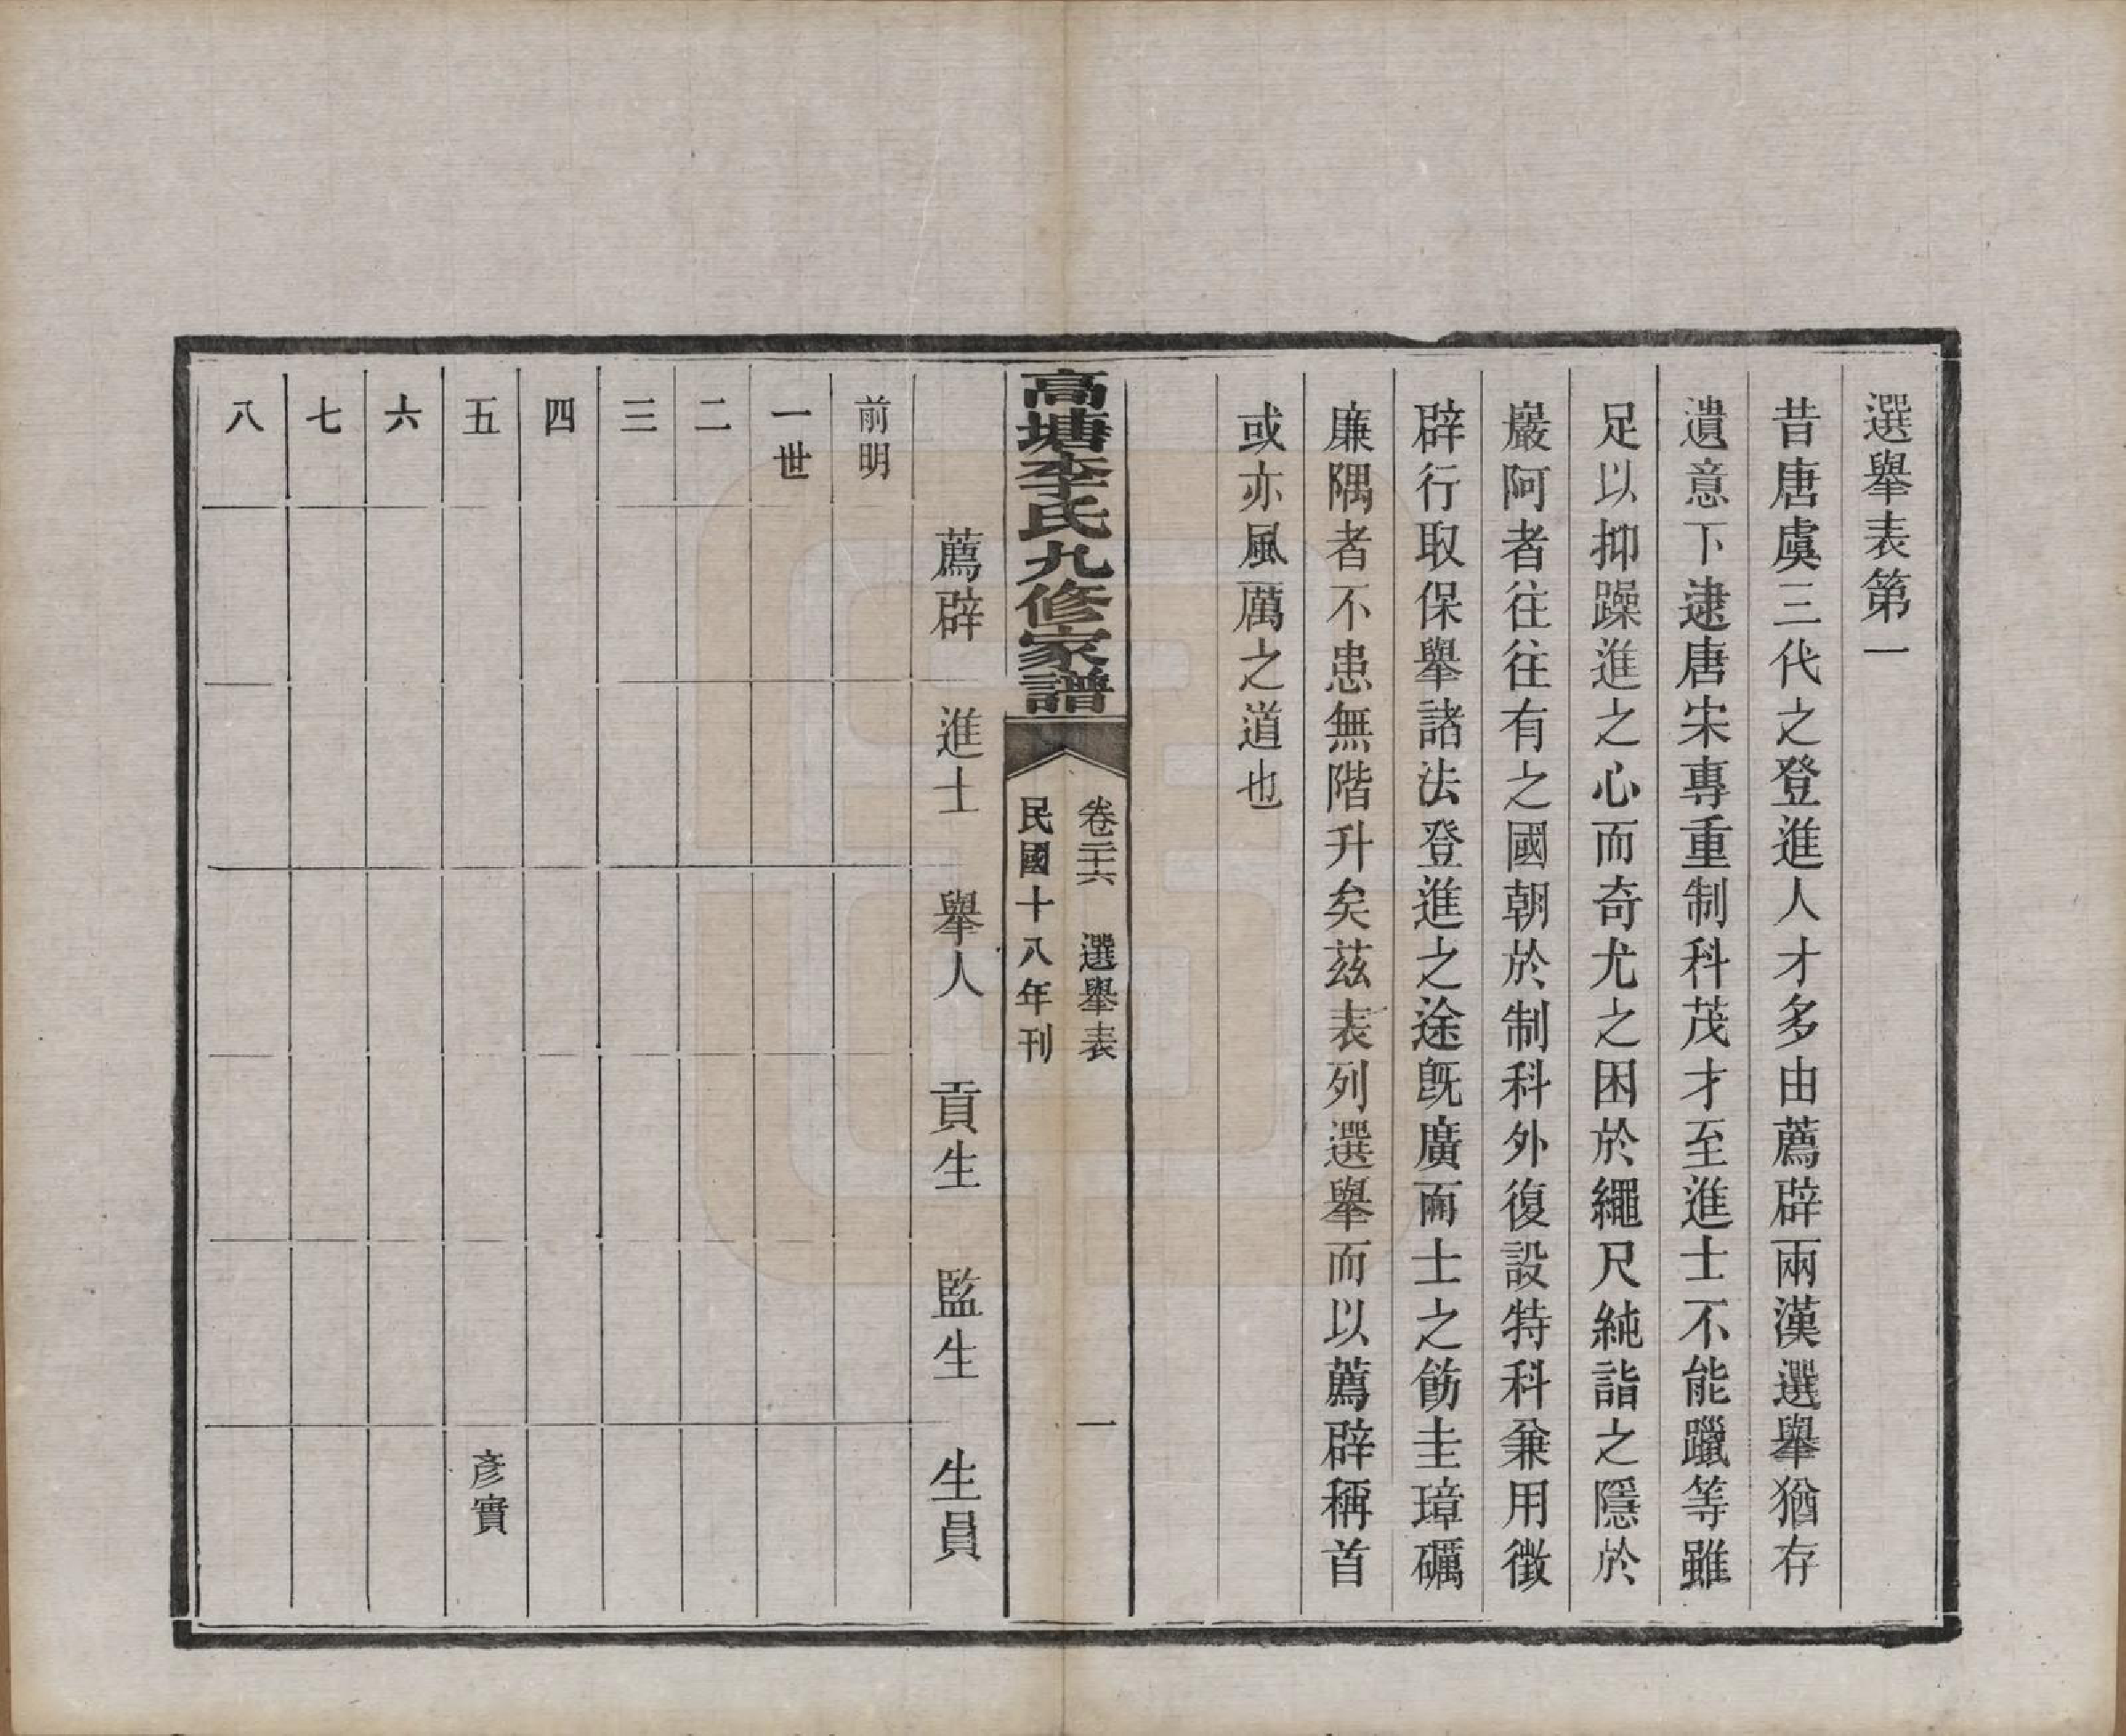 選舉表第一
昔唐虞三代之登進人才多由薦辟兩漢選舉猶存
遺意下逮唐宋專重制科茂才至進士不能躐等雖
足以抑躁進之心而奇尤之困於繩尺純詣之隱於
巖阿者往往有之國朝於制科外復設特科兼用徴
辟行取保舉諸法登進之途旣廣而士之飭圭璋礪
廉隅者不患無階升矣茲表列選舉而以薦辟稱首
或亦風厲之道也
高塘李氏九修家譜
卷二十六 選舉表 一
民國十八年刊
薦辟 進士 舉人 貢生 監生 生員
前明
一世
二
三
四
五 彥實
六
七
八